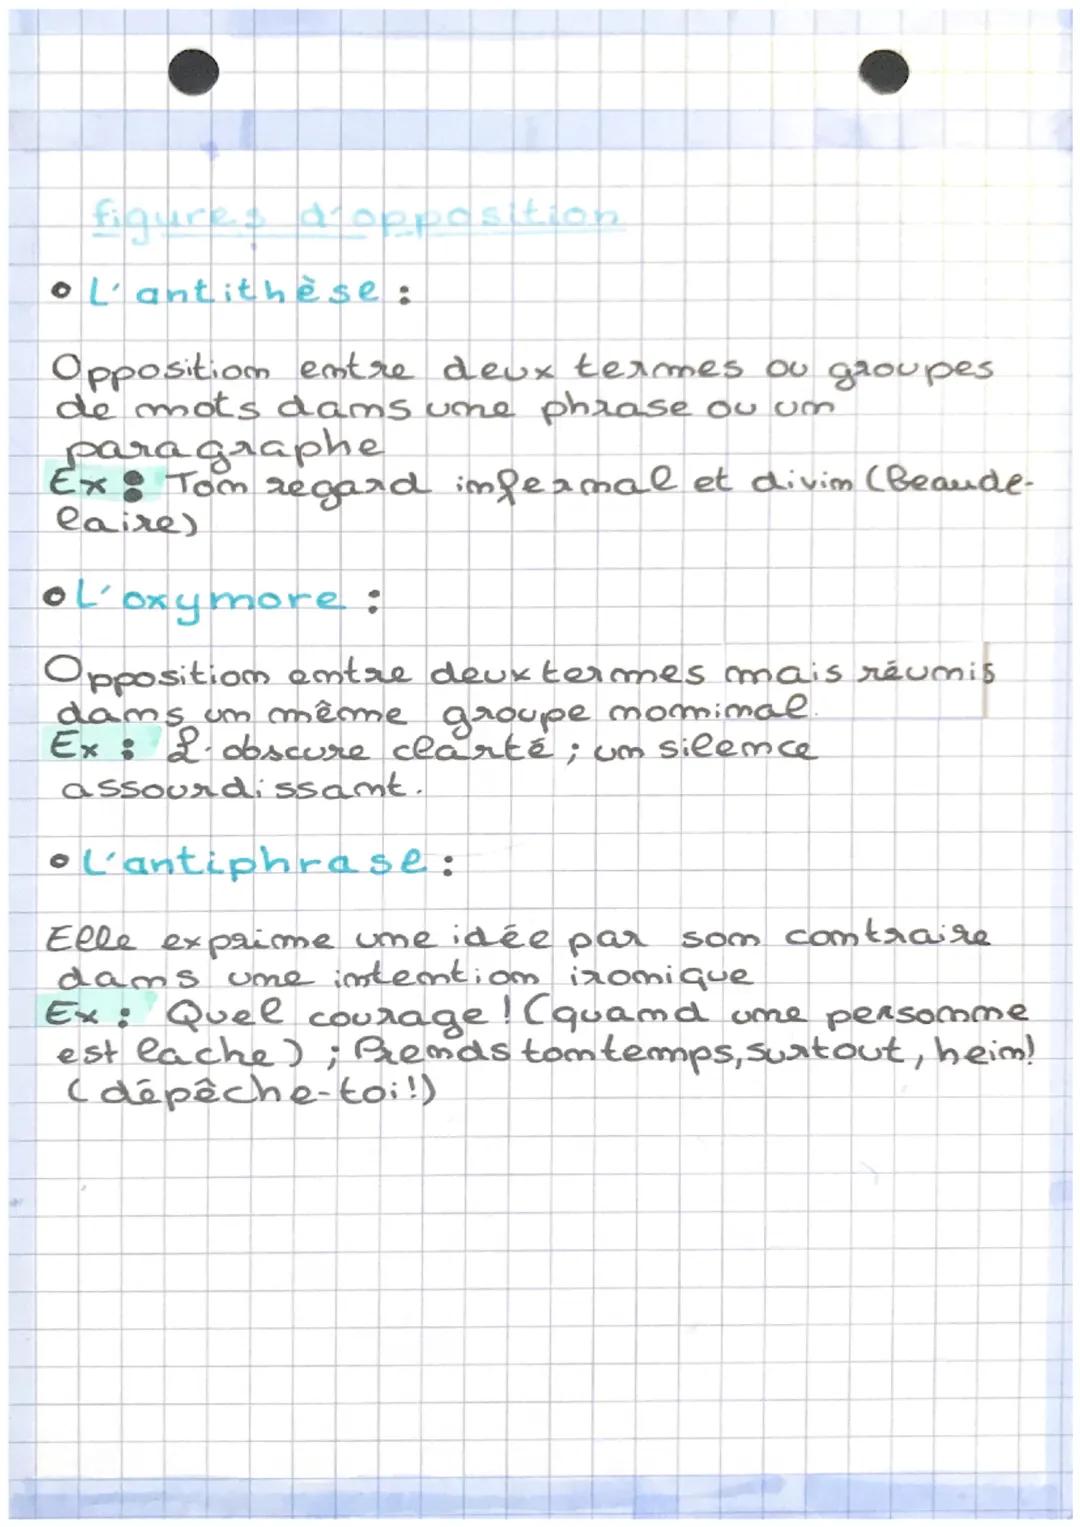 figures d'opposition
• L'antithèse :
Opposition entre deux termes ou groupes
de mots dans une phrase ou un
paragraphe
Ex : Ton regard infernal et divin (Beaude-
laire)
• L'oxymore :
Opposition entre deux termes mais réunis
dans un même groupe nominal.
Ex : L'obscure clarté ; un silence
assourdissant.
• L'antiphrase :
Elle exprime une idée par son contraire
dans une intention ironique
Ex : Quel courage ! (quand une personne
est lache) ; Prends ton temps, surtout, hein!
(dépêche-toi!)